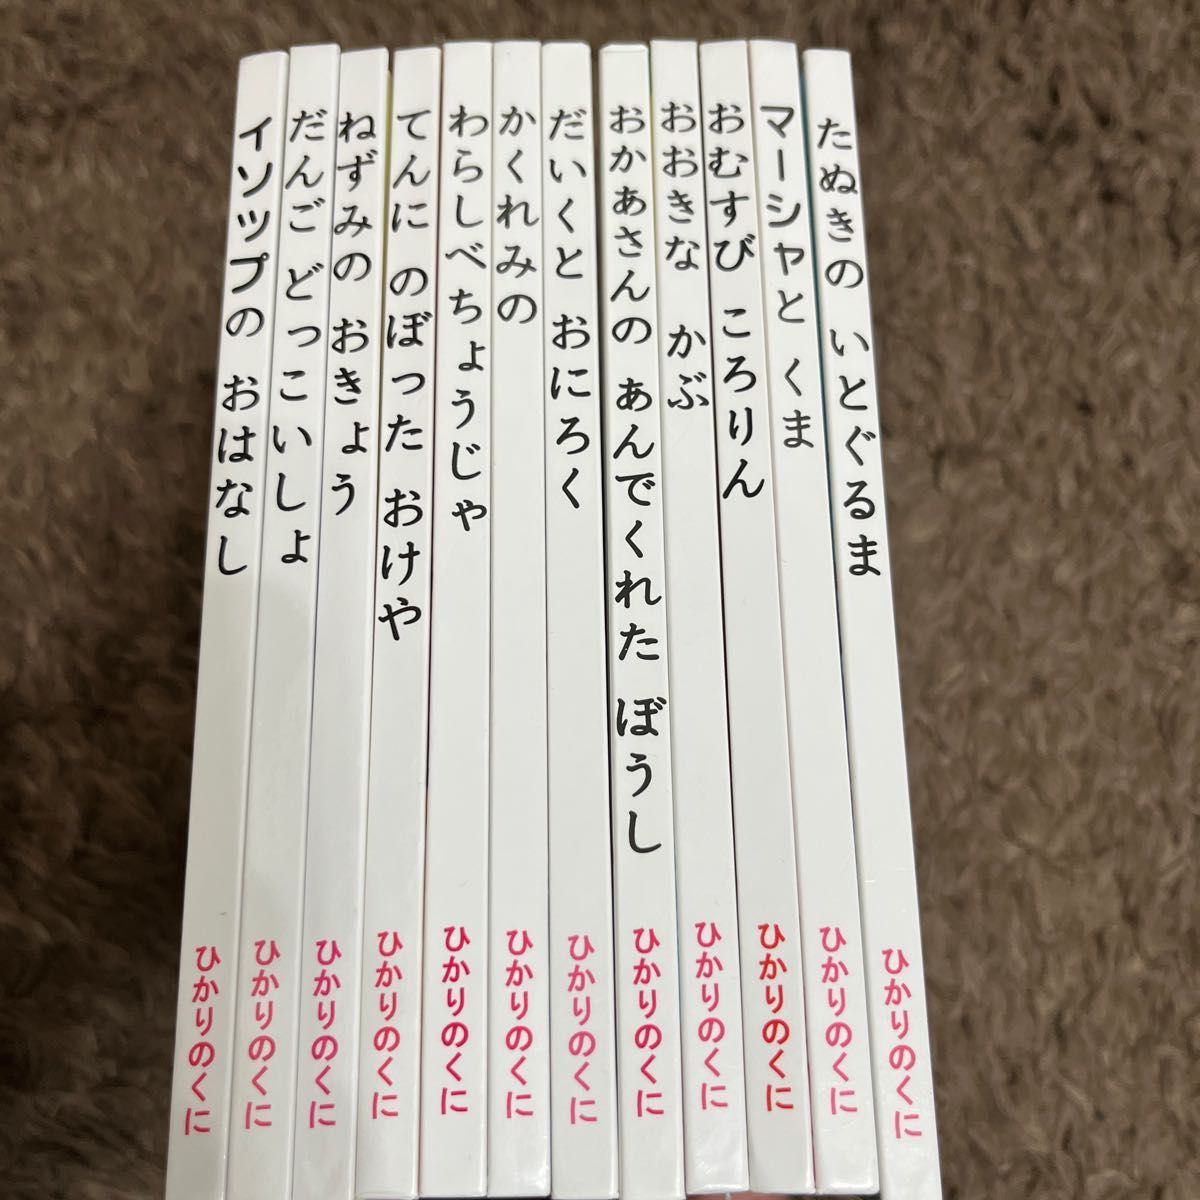 たぬきの いとぐるま
ひかりのくに
マーシャと くま
ひかりのくに
おむすび ころりん
ひかりのくに
おおきな かぶ
ひかりのくに
おかあさんの あんでくれた ぼうし
ひかりのくに
だいくと おにろく
ひかりのくに
かくれみの
ひかりのくに
わらしべちょうじゃ
ひかりのくに
てんに のぼった おけや
ひかりのくに
ねずみの おきょう
ひかりのくに
だんご どっこいしょ
ひかりのくに
イソップの おはなし
ひかりのくに